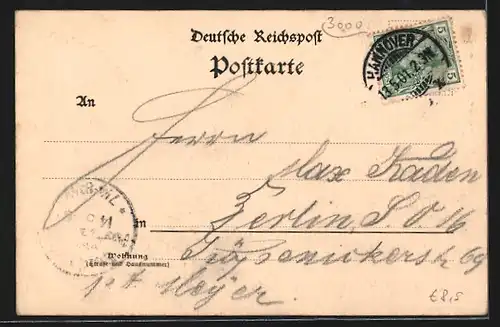 3000
Deutsche Reichspost
Postkarte
5 5
HANNOVER
13.5.01.2-3N.
An
Herrn
Max Kaden
in Berlin S. O. 16
Wohnung
(Straße und Hausnummer)
69
p. A. Meyer.